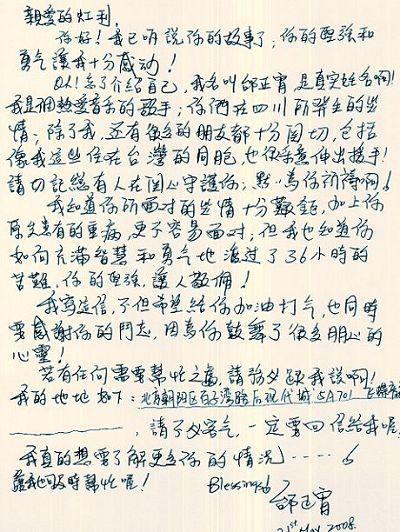 親愛的灯利,
你好!我已听說你的故事了,你的堅強和
勇气讓我十分感动!
Oh!忘了介紹自己,我名叫邰正宵,是真实姓名啊!
我是個熱愛音乐的歌手;你們在四川所發生的事
情;除了我,还有很多的朋友都十分関切,包括
像我這些住在台灣的同胞,也很乐意伸出援手!
請切記総有人在関心守護你;默默為你祈禱啊!
我知道你所面对的事情十分艱鉅,加上你
原先患有的重病,更不容易面对;但我也知道你
如何充滿智慧和勇气地渡过了36小時的
苦難,你的堅強,讓人敬佩!
我寫這信,不但希望給你加油打气,也同時
要感謝你的鬥志,因為你鼓舞了很多朋友的
心靈!
若有任何需要幫忙之處,請務必跟我說啊!
我的地址如下:北京朝阳区百子湾路后现代城5A701
,請不必客气,一定要回信給我喔
我真的想要了解更多你的情況......
讓我們及時幫忙喔!
Blessings
邰正宵
21st May 2008